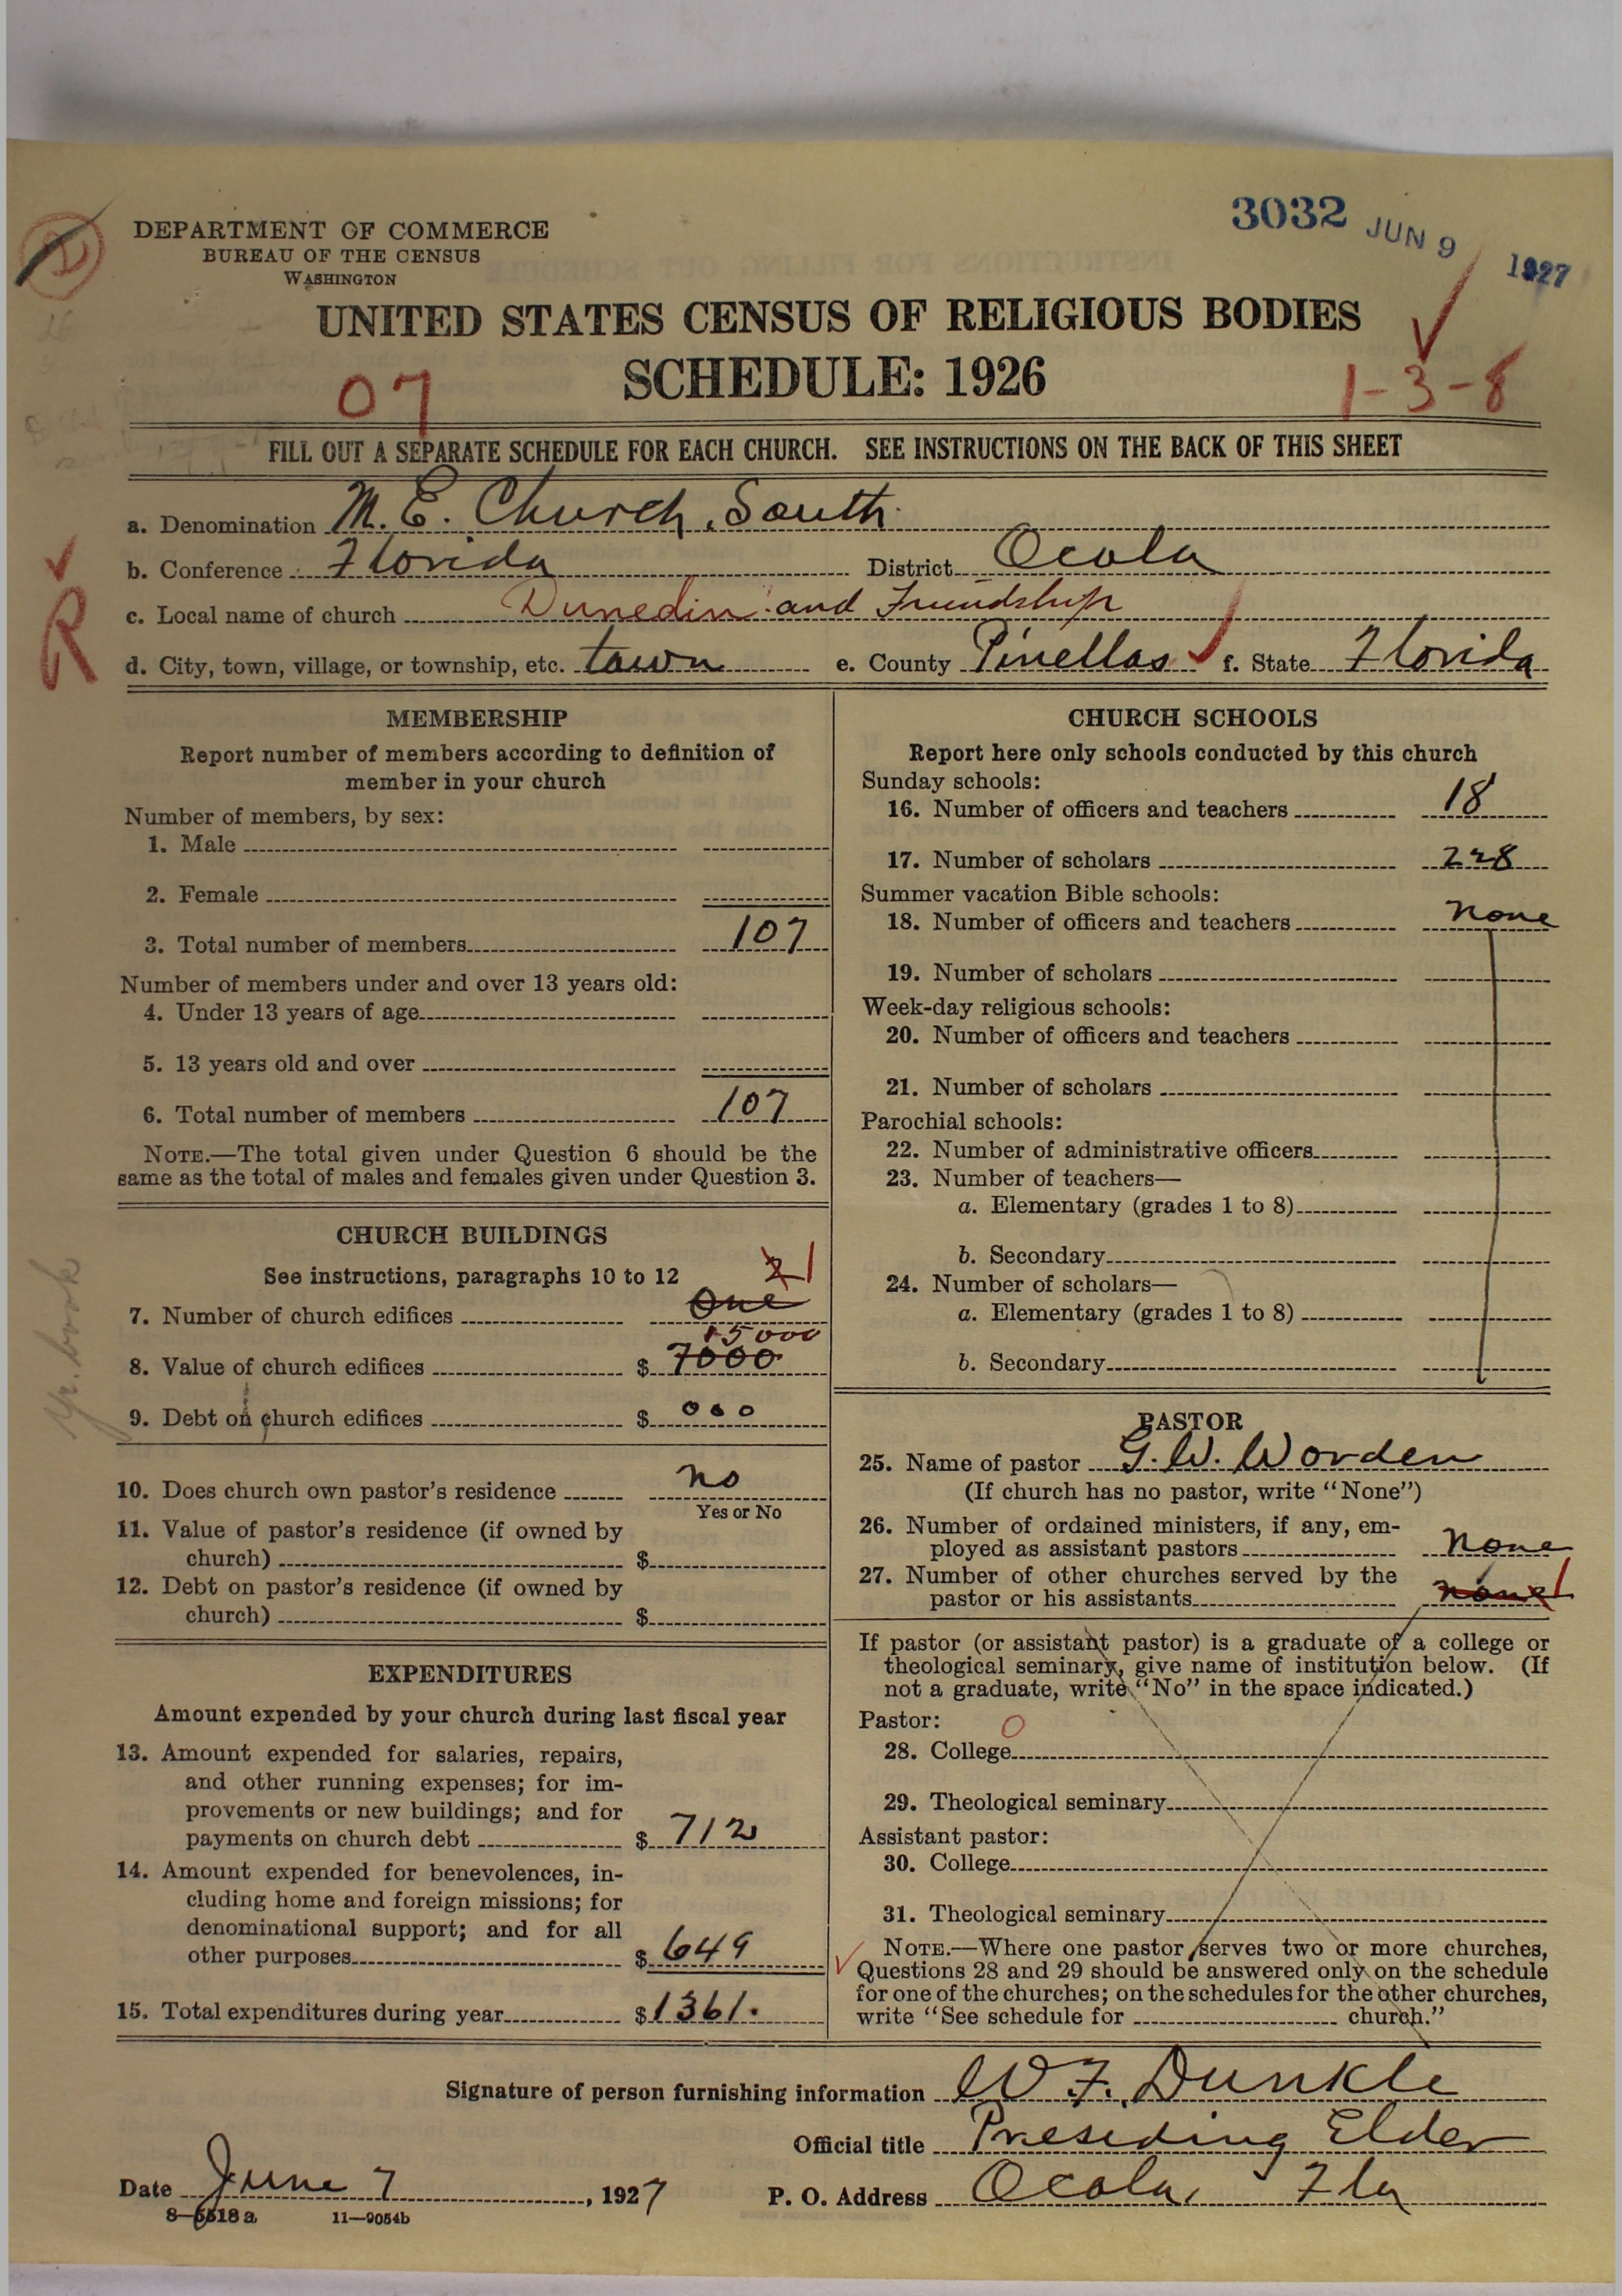 3032 JUN 9 1927
DEPARTMENT OF COMMERCE
BUREAU OF THE CENSUS
WASHINGTON
UNITED STATES CENSUS OF RELIGIOUS BODIES
SCHEDULE: 1926
07
1-3-8
FILL OUT A SEPARATE SCHEDULE FOR EACH CHURCH. SEE INSTRUCTIONS ON THE BACK OF THIS SHEET
a. Denomination M. E. Church, South
b. Conference Florida District Ocala
R
c. Local name of church Dunedin and Friendship
d. City, town, village, or township, etc. town e. County Pinellas f. State Florida
MEMBERSHIP
Report number of members according to definition of
member in your church
Number of members, by sex:
1. Male
2. Female
3. Total number of members 107
Number of members under and over 13 years old:
4. Under 13 years of age
5. 13 years old and over
6. Total number of members 107
NOTE.—The total given under Question 6 should be the
same as the total of males and females given under Question 3.
CHURCH BUILDINGS
See instructions, paragraphs 10 to 12
2 1
7. Number of church edifices One
15000
8. Value of church edifices $ 7000
9. Debt on church edifices $ 000
Yr. book
10. Does church own pastor's residence no
Yes or No
11. Value of pastor's residence (if owned by
church) $
12. Debt on pastor's residence (if owned by
church) $
EXPENDITURES
Amount expended by your church during last fiscal year
13. Amount expended for salaries, repairs,
and other running expenses; for im-
provements or new buildings; and for
payments on church debt $ 712
14. Amount expended for benevolences, in-
cluding home and foreign missions; for
denominational support; and for all
other purposes $ 649
15. Total expenditures during year $ 1361.
CHURCH SCHOOLS
Report here only schools conducted by this church
Sunday schools:
16. Number of officers and teachers 18
17. Number of scholars 228
Summer vacation Bible schools:
18. Number of officers and teachers none
19. Number of scholars
Week-day religious schools:
20. Number of officers and teachers
21. Number of scholars
Parochial schools:
22. Number of administrative officers
23. Number of teachers—
a. Elementary (grades 1 to 8)
b. Secondary
24. Number of scholars—
a. Elementary (grades 1 to 8)
b. Secondary
PASTOR
25. Name of pastor G. W. Worden
(If church has no pastor, write "None")
26. Number of ordained ministers, if any, em-
ployed as assistant pastors none
27. Number of other churches served by the
pastor or his assistants none 1
If pastor (or assistant pastor) is a graduate of a college or
theological seminary, give name of institution below. (If
not a graduate, write "No" in the space indicated.)
Pastor: 0
28. College
29. Theological seminary
Assistant pastor:
30. College
31. Theological seminary
NOTE.—Where one pastor serves two or more churches,
Questions 28 and 29 should be answered only on the schedule
for one of the churches; on the schedules for the other churches,
write "See schedule for church."
Signature of person furnishing information W. F. Dunkle
Official title Presiding Elder
Date June 7, 1927 P. O. Address Ocala, Fla
8—5518a 11—9054b